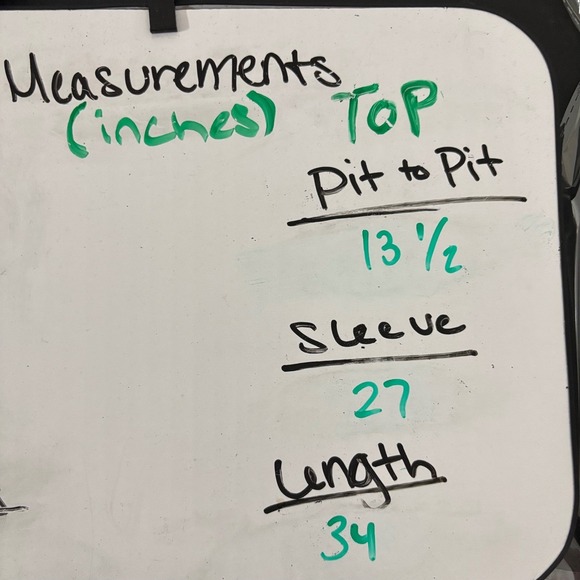 Measurements
(inches) TOP
Pit to Pit
13 1/2
Sleeve
27
Length
34